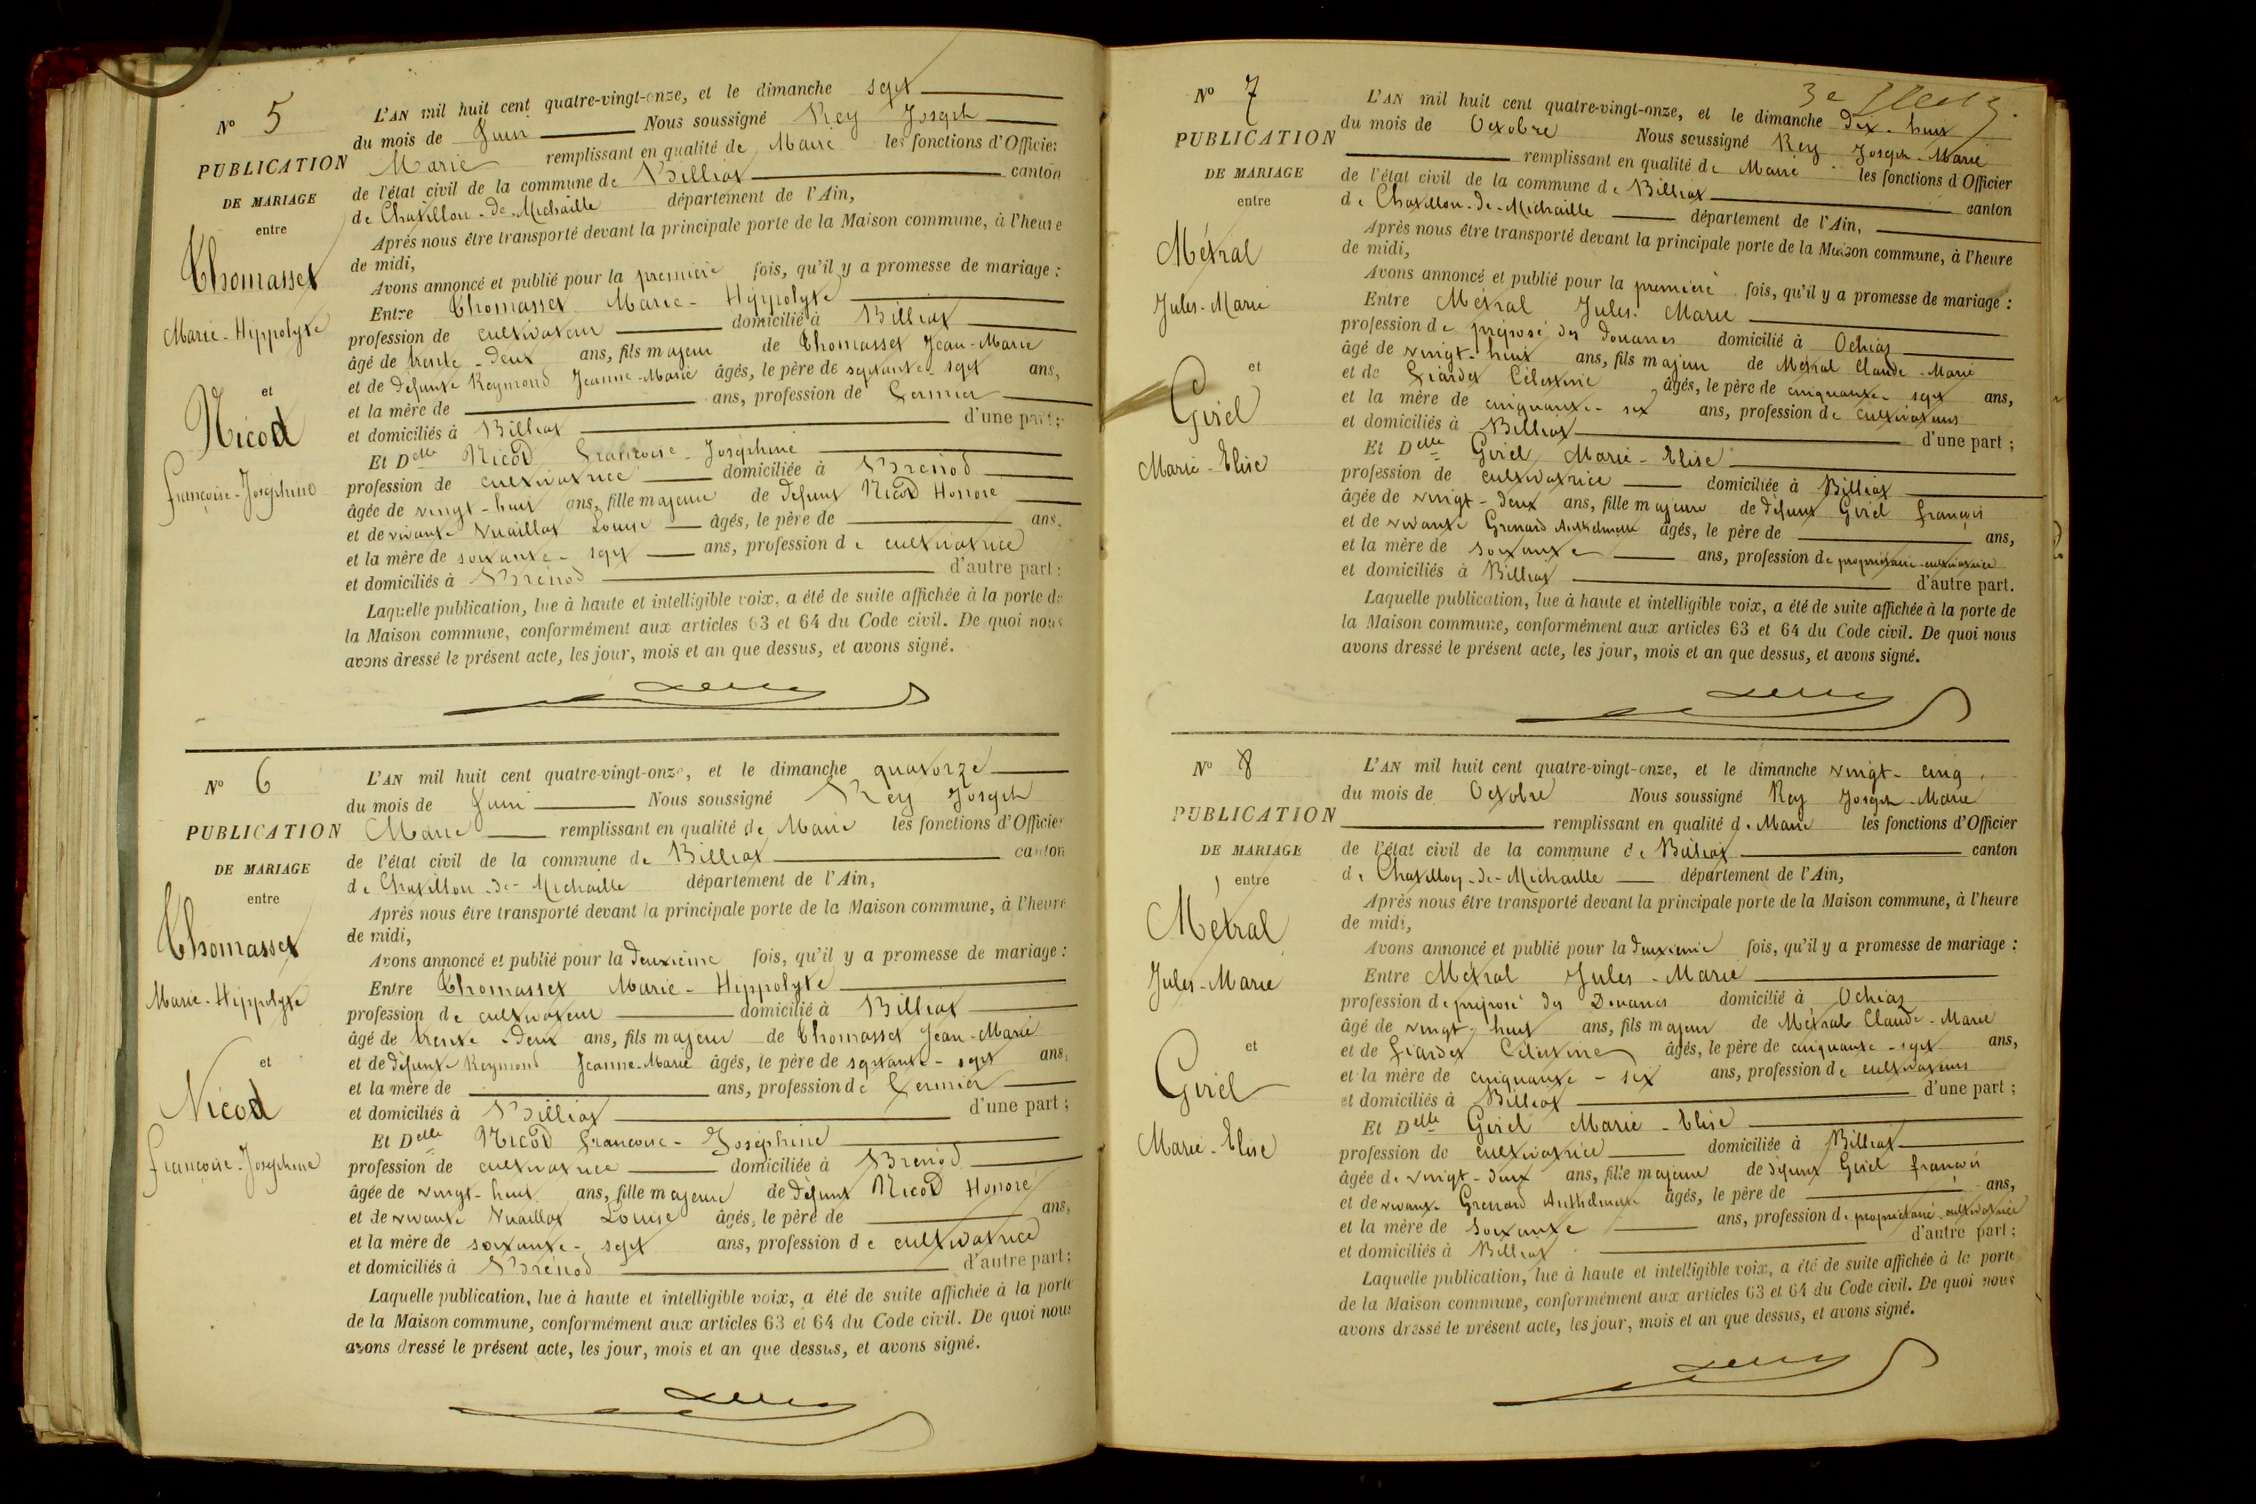 N° 5
PUBLICATION
DE MARIAGE
entre
Thomasset
Marie-Hippolyte
et
Nicod
Françoise-Joséphine
L'AN mil huit cent quatre-vingt-onze, et le dimanche sept
du mois de Juin Nous soussigné Rey Joseph
Marie remplissant en qualité de Maire les fonctions d'Officier
de l'état civil de la commune de Billiat canton
de Chatillon-de-Michaille département de l'Ain,
Après nous être transporté devant la principale porte de la Maison commune, à l'heure
de midi,
Avons annoncé et publié pour la première fois, qu'il y a promesse de mariage :
Entre Thomasset Marie-Hippolyte
profession de cultivateur domicilié à Billiat
âgé de trente-deux ans, fils majeur de Thomasset Jean-Marie
et de défunte Reymond Jeanne-Marie âgés, le père de septante-sept ans,
et la mère de ans, profession de Fermier
et domiciliés à Billiat d'une part;
Et Delle Nicod Françoise-Joséphine
profession de cultivatrice domiciliée à Brénod
âgée de vingt-huit ans, fille majeure de défunt Nicod Honoré
et de vivante Vuaillat Louise âgés, le père de ans,
et la mère de soixante-sept ans, profession de cultivatrice
et domiciliés à Brénod d'autre part:
Laquelle publication, lue à haute et intelligible voix, a été de suite affichée à la porte de
la Maison commune, conformément aux articles 63 et 64 du Code civil. De quoi nous
avons dressé le présent acte, les jour, mois et an que dessus, et avons signé.
N° 6
PUBLICATION
DE MARIAGE
entre
Thomasset
Marie-Hippolyte
et
Nicod
Françoise-Joséphine
L'AN mil huit cent quatre-vingt-onze, et le dimanche quatorze
du mois de Juin Nous soussigné Rey Joseph
Marie remplissant en qualité de Maire les fonctions d'Officier
de l'état civil de la commune de Billiat canton
de Chatillon-de-Michaille département de l'Ain,
Après nous être transporté devant la principale porte de la Maison commune, à l'heure
de midi,
Avons annoncé et publié pour la deuxième fois, qu'il y a promesse de mariage :
Entre Thomasset Marie-Hippolyte
profession de cultivateur domicilié à Billiat
âgé de trente-deux ans, fils majeur de Thomasset Jean-Marie
et de défunte Reymond Jeanne-Marie âgés, le père de septante-sept ans,
et la mère de ans, profession de Fermier
et domiciliés à Billiat d'une part ;
Et Delle Nicod Françoise-Joséphine
profession de cultivatrice domiciliée à Brénod
âgée de vingt-huit ans, fille majeure de défunt Nicod Honoré
et de vivante Vuaillat Louise âgés, le père de ans,
et la mère de soixante-sept ans, profession de cultivatrice
et domiciliés à Brénod d'autre part;
Laquelle publication, lue à haute et intelligible voix, a été de suite affichée à la porte
de la Maison commune, conformément aux articles 63 et 64 du Code civil. De quoi nous
avons dressé le présent acte, les jour, mois et an que dessus, et avons signé.
3e
N° 7
PUBLICATION
DE MARIAGE
entre
Métral
Jules-Marie
et
Girel
Marie-Elise
L'AN mil huit cent quatre-vingt-onze, et le dimanche dix-huit
du mois de Octobre Nous soussigné Rey Joseph-Marie
remplissant en qualité de Maire les fonctions d'Officier
de l'état civil de la commune de Billiat canton
de Chatillon-de-Michaille département de l'Ain,
Après nous être transporté devant la principale porte de la Maison commune, à l'heure
de midi,
Avons annoncé et publié pour la première fois, qu'il y a promesse de mariage :
Entre Métral Jules-Marie
profession de préposé des douanes domicilié à Ochiaz
âgé de vingt-huit ans, fils majeur de Métral Claude-Marie
et de Giardet Célestine âgés, le père de cinquante-sept ans,
et la mère de cinquante-six ans, profession de cultivateurs
et domiciliés à Billiat d'une part ;
Et Delle Girel Marie-Elise
profession de cultivatrice domiciliée à Billiat
âgée de vingt-deux ans, fille majeure de défunt Girel François
et de vivante Grenard Anthelmette âgés, le père de ans,
et la mère de soixante ans, profession de propriétaire-cultivatrice
et domiciliés à Billiat d'autre part.
Laquelle publication, lue à haute et intelligible voix, a été de suite affichée à la porte de
la Maison commune, conformément aux articles 63 et 64 du Code civil. De quoi nous
avons dressé le présent acte, les jour, mois et an que dessus, et avons signé.
N° 8
PUBLICATION
DE MARIAGE
entre
Métral
Jules-Marie
et
Girel
Marie-Elise
L'AN mil huit cent quatre-vingt-onze, et le dimanche vingt-cinq
du mois de Octobre Nous soussigné Rey Joseph-Marie
remplissant en qualité de Maire les fonctions d'Officier
de l'état civil de la commune de Billiat canton
de Chatillon-de-Michaille département de l'Ain,
Après nous être transporté devant la principale porte de la Maison commune, à l'heure
de midi,
Avons annoncé et publié pour la deuxième fois, qu'il y a promesse de mariage :
Entre Métral Jules-Marie
profession de préposé des Douanes domicilié à Ochiaz
âgé de vingt-huit ans, fils majeur de Métral Claude-Marie
et de Giardet Célestine âgés, le père de cinquante-sept ans,
et la mère de cinquante-six ans, profession de cultivateurs
et domiciliés à Billiat d'une part ;
Et Delle Girel Marie-Elise
profession de cultivatrice domiciliée à Billiat
âgée de vingt-deux ans, fille majeure de défunt Girel François
et de vivante Grenard Anthelmette âgés, le père de ans,
et la mère de soixante ans, profession de propriétaire-cultivatrice
et domiciliés à Billiat d'autre part ;
Laquelle publication, lue à haute et intelligible voix, a été de suite affichée à la porte
de la Maison commune, conformément aux articles 63 et 64 du Code civil. De quoi nous
avons dressé le présent acte, les jour, mois et an que dessus, et avons signé.